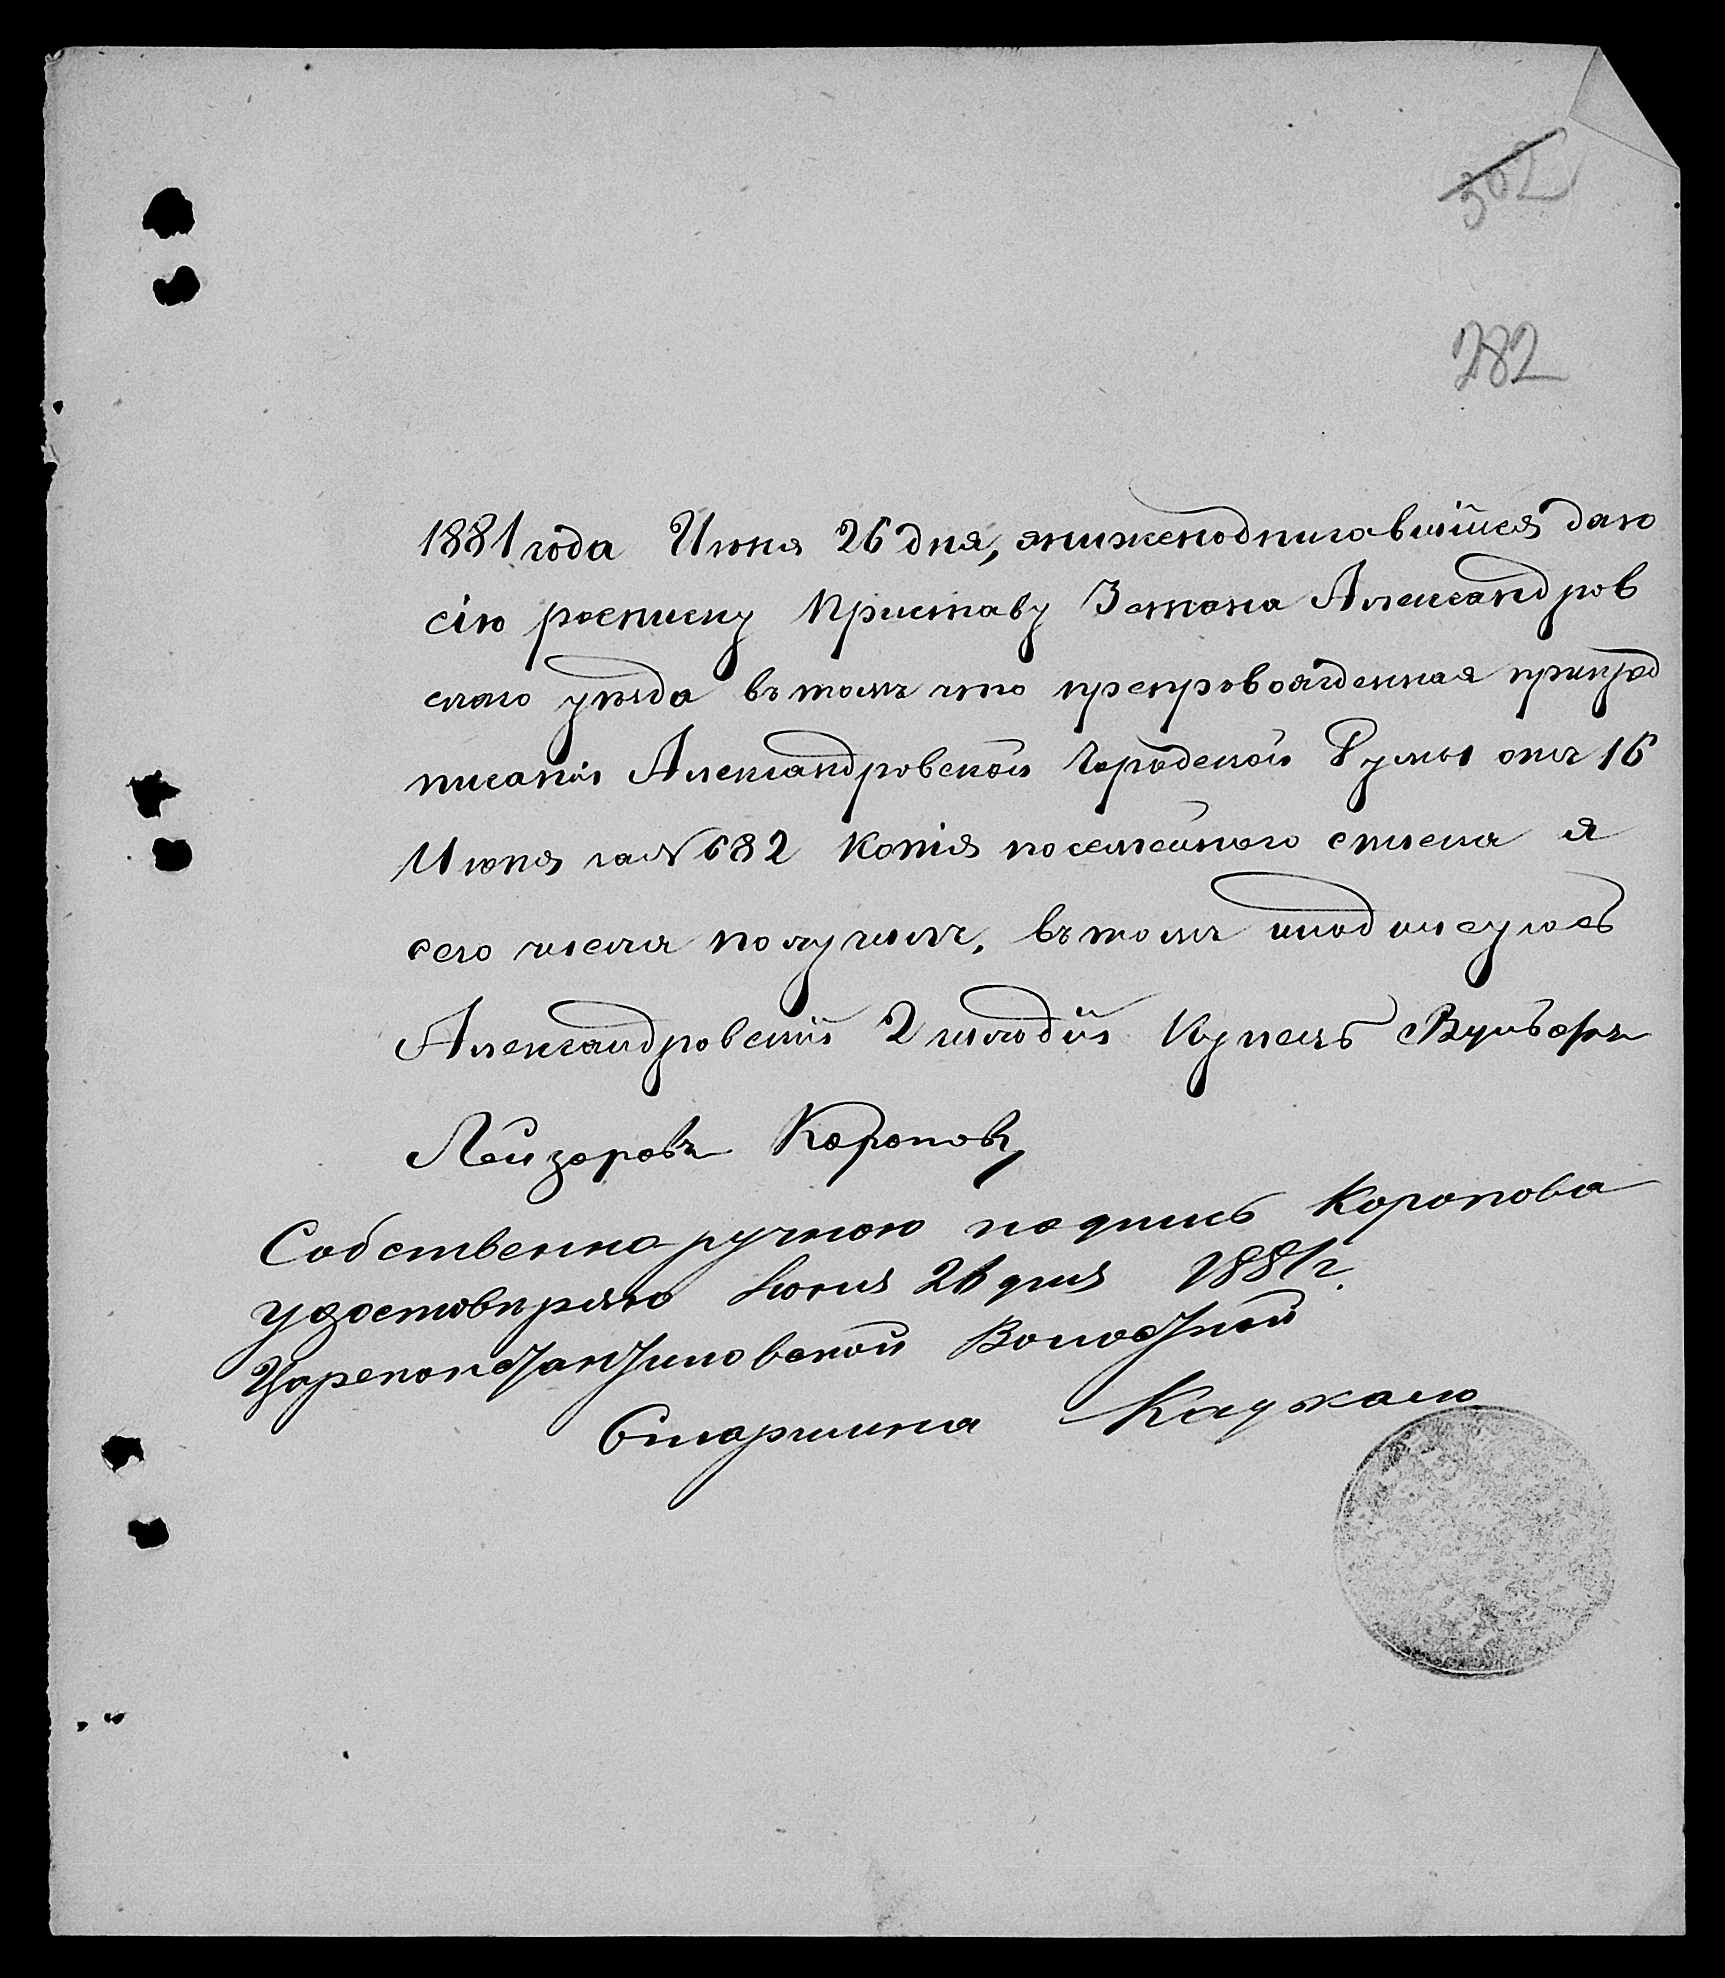 302
282
1881 года Июня 26 дня, янижеподписавшійся даю
сію росписку Приставу 3 стана Александров
скаго уѣзда въ томъ что препровожденная припред
писаніи Александровской Городской Думы отъ 16
Июня за № 682 копія посемейнаго списка я
сего числа получилъ, въ томъ иподписуюсь
Александровскій 2 гильдіи Купецъ Вульфъ
Лейзеровъ Короповъ
Собственно ручною подпись Коропова
удостовѣряю Іюня 26 дня 1881 г.
Цареконстантиновской Волостной
Старшина